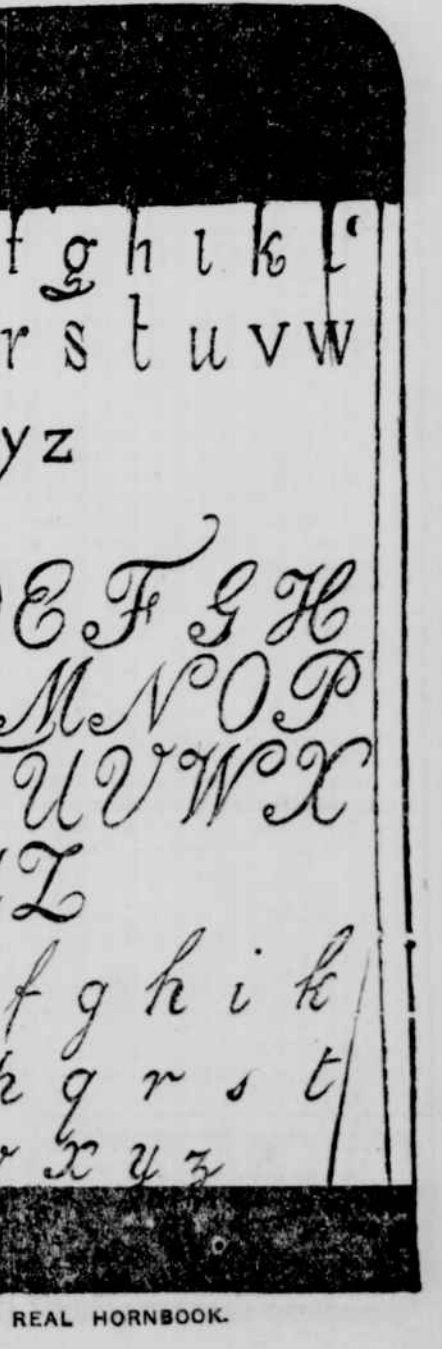 f g h i k l
r s t u v w
y z
E F G H
M N O P
U V W X
Z
f g h i k
p q r s t
x y z
REAL HORNBOOK.